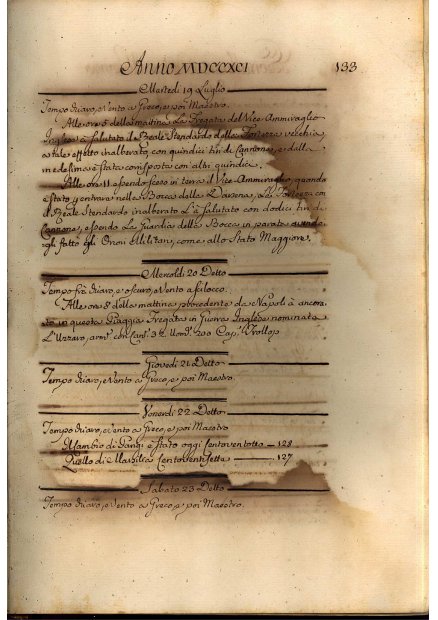 Anno MDCCXCI 133
Martedì 19 Luglio
Tempo chiaro, e Vento a Greco, e poi Maestro.
Alle ore 5 della mattina La Fregata del Vice Ammiraglio
Inglese à salutato il Reale Stendardo della Fortezza vecchia
a tale effetto inalberato con quindici tiri di Cannone, e dalla
medesima è stata corrisposta con altri quindici.
Alle ore 11 essendo sceso in terra il Vice Ammiraglio, quando
è stato per entrare nella Bocca della Darsena, La Fortezza con
il Reale Stendardo inalberato L'à salutato con dodici tiri di
Cannone, essendo La Guardia della Bocca in parata
gli fatto gli Onori Militari, come allo Stato Maggiore.
Mercoldì 20 Detto
Tempo chiaro, e oscuro, e Vento a Silocco.
Alle ore 8 della mattina procedente da Napoli à ancorato
in questa Piaggia Fregata in Guerra Inglese nominata
L' con Can. 32 Uom. 200 Cap.
Giovedì 21 Detto
Tempo chiaro, e Vento a Greco, e poi Maestro.
Venerdì 22 Detto
Tempo chiaro, e vento a Greco, e poi Maestro
Il Cambio di Parigi è stato oggi Centoventotto — 128
Quello di Marsilia Centoventisette — 127
Sabato 23 Detto
Tempo chiaro, e Vento a Greco, e poi Maestro.